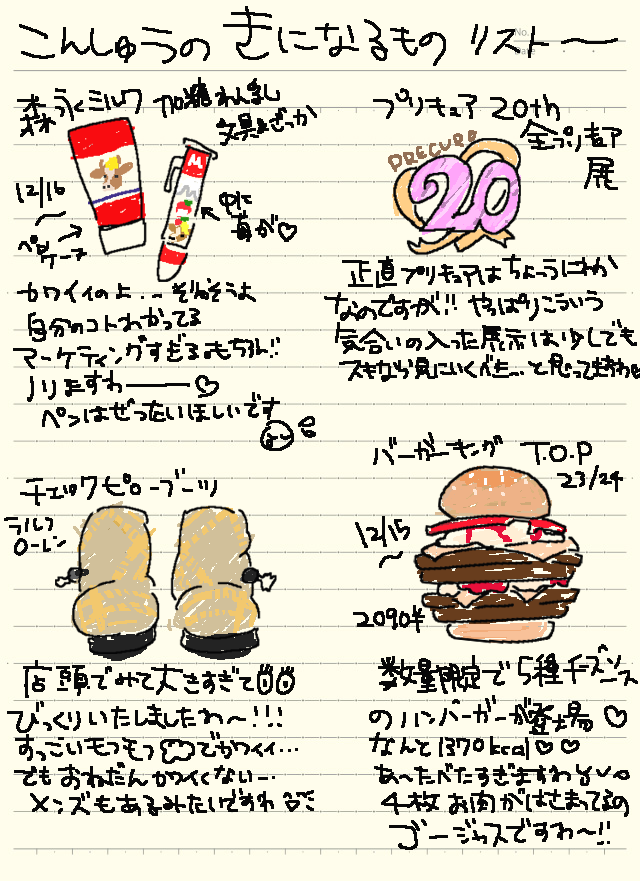 こんしゅうの きになるもの リスト〜
No.
Date
森永ミルク 加糖れん乳
文具&ざっか
12/16
〜
ペン
ケース
中に
苺が♡
カワイイのよ... ぞぞぞうよ
自分のコトわかってる
マーケティングすぎるもちろん!!
ノりますわ――♡
ペンはぜったいほしいです
プリキュア 20th
全プリキュア
展
PRECURE
20
正直プリキュアはちょーっうにわか
なのですが!! やっぱりこういう
気合いの入った展示は少しでも
スキなら見にいくべき...と思ってますわ
チェックピローブーツ
ラルフ
ローレン
店頭でみて大きすぎて
びっくりいたしましたわ〜!!!
すっごいモフモフでかワイイ...
でもおねだんカワイくない...
メンズもあるみたいですわ
バーガーキング T.O.P
23/24
12/15
〜
2090半
数量限定で5種チーズソース
のハンバーガーが登場♡
なんと1370kcal♡♡
あ〜たべたすぎますわ
4枚お肉がはさまってるの
ゴージャスですわ〜!!